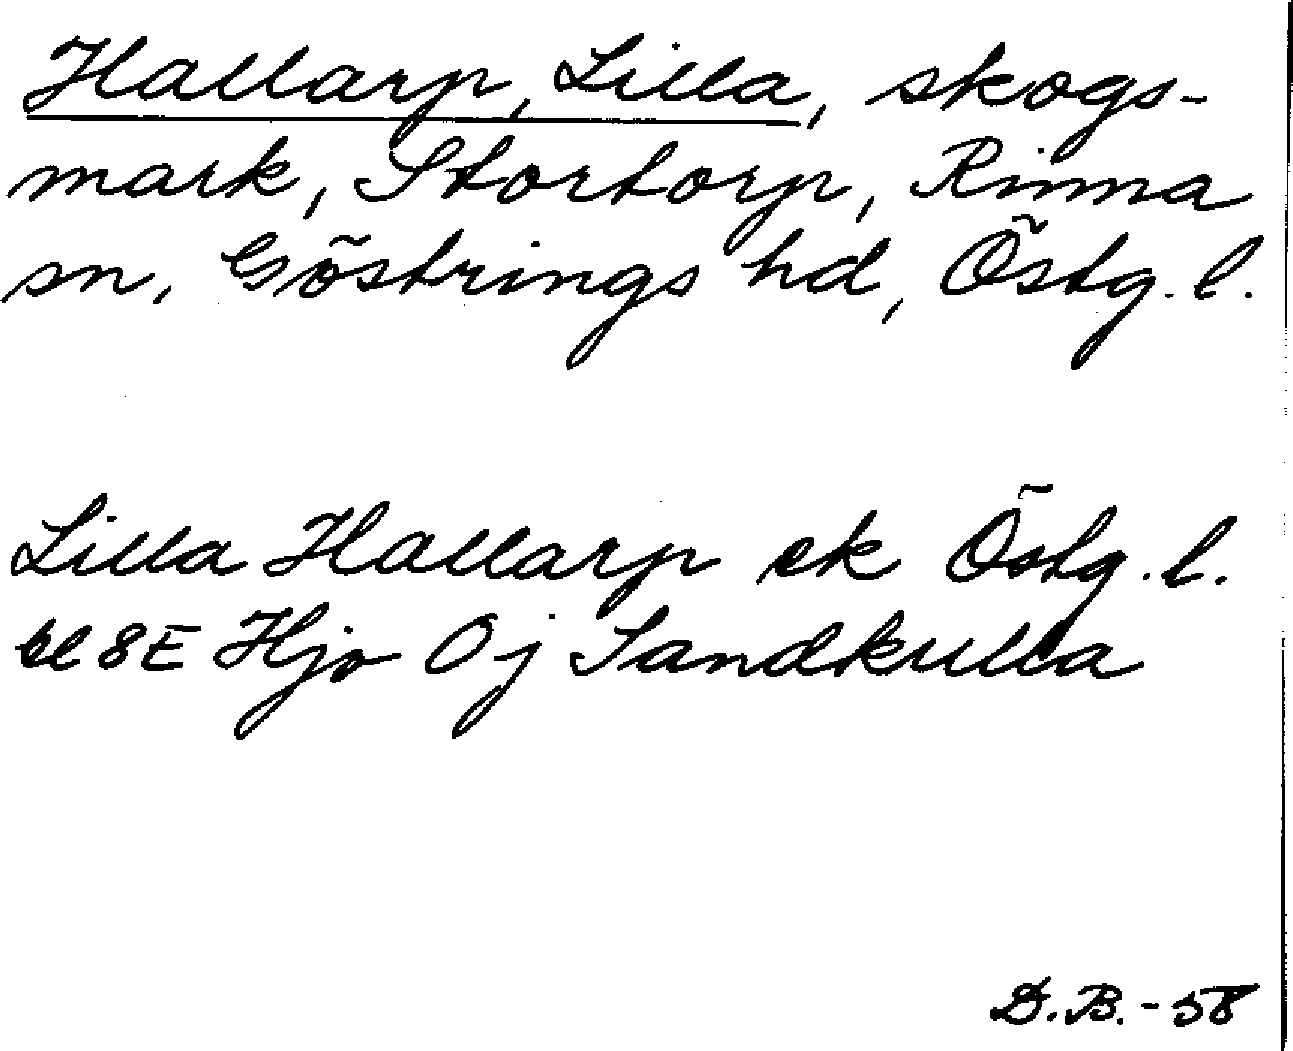 Hallarp, Lilla, skogs-
mark, Stortorp, Rinna
sn, Göstrings hd, Östg. l.
Lilla Hallarp ek Östg. l.
bl 8E Hjo Oj Sandkulla
D.B. - 58